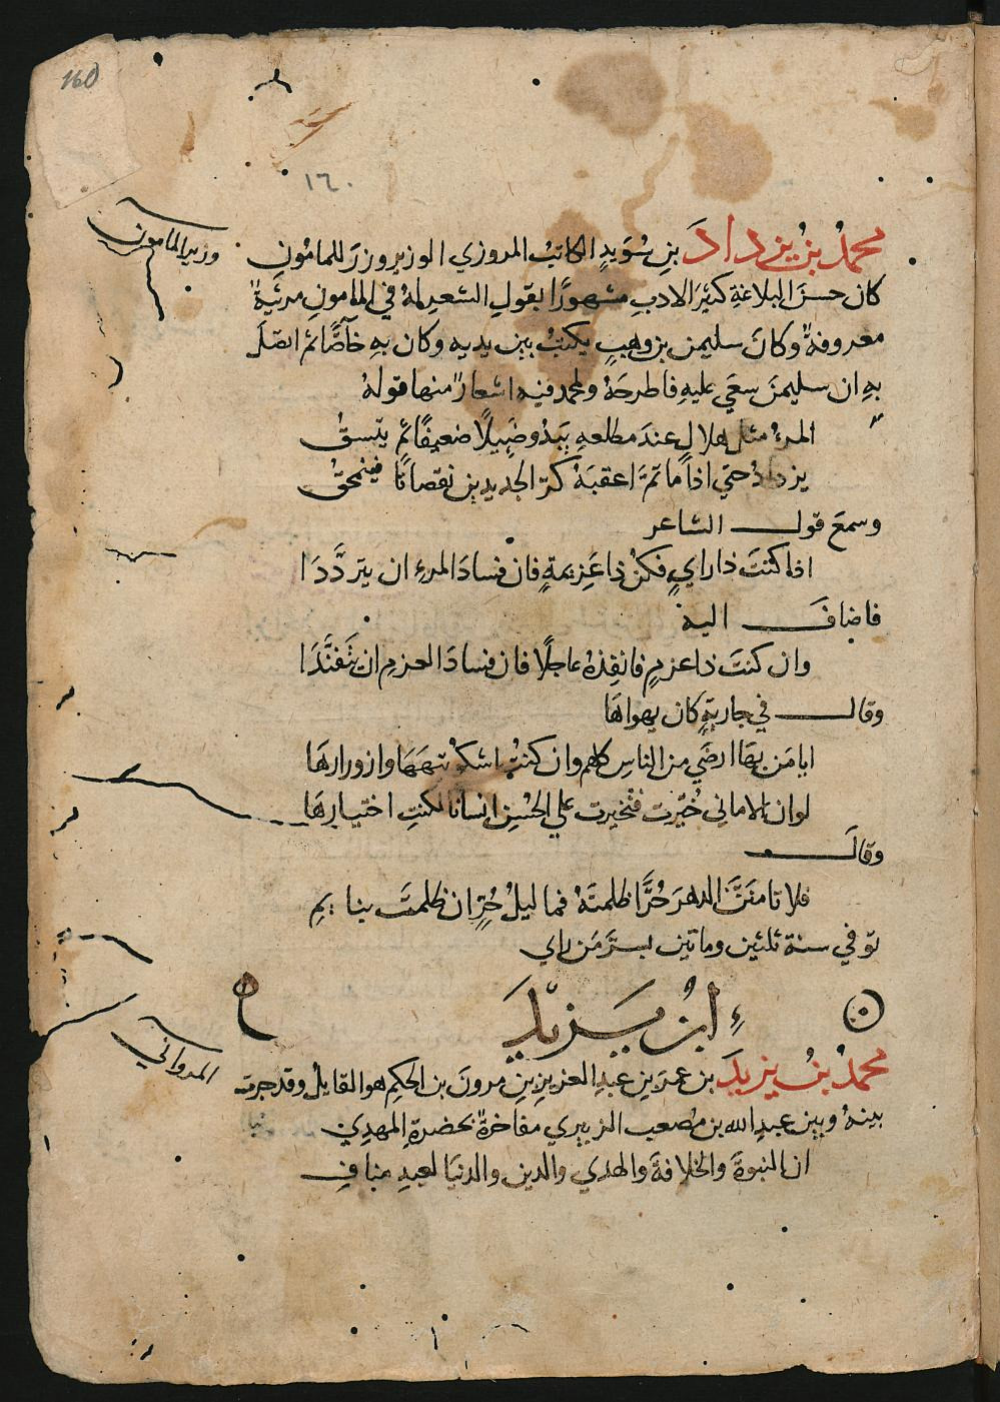 160
١٦٠
محمدُ بنُ يزدادَ بنِ سُوَيدٍ الكاتبُ المروزي الوزير وزرَ للمامُونِ
وزير المامون
كان حسنَ البلاغةِ كثيرَ الادبِ مشهورًا بقولِ الشعرِ لهُ في المامونِ مرثيةٌ
معروفةٌ وكانَ سليمن بن وهبٍ يكتبُ بين يديهِ وكان بهِ خاصًّا ثم اتصَلَ
بهِ ان سليمنَ سعَي عليهِ فاطرحَهُ ولمحمد فيهِ اشعارٌ منها قولهُ
المرءُ مثل هلالٍ عندَ مطلعهِ يَبدُو ضَئِيلًا ضعيفًا ثُم يتّسقُ
يزدادُ حتي اذا ما تمَّ اعقبَهُ كرّ الجديدينِ نقصانًا فينمحقُ
وسمعَ قول الشاعر
اذا كنتَ ذا رايٍ فكُنْ ذا عَزِيمةٍ فان فسادَ المرءِ ان يترَدَّدَا
فاضافَ اليهِ
وان كنتَ ذا عزمٍ فانفِذهُ عاجلًا فان فسادَ العزمِ ان يَتَفنَّدَا
وقال في جاريةٍ كان يهواهَا
ايا مَن بهَا ارضَي من الناسِ كلهم وان كنتُ اشكو تيههَا وازورارهَا
لو ان الاماني خُيّرت فتخيرت علي الحُسنِ انسانًا لكنتِ اختيارهَا
وقالَ
فلا تامنَنَّ الدهرَ حُرًّا ظلمتَهُ فما ليلُ حُرٍّ ان ظلمتَ بنايمِ
توفي سنة ثلثين وماتين بسرّ مَن راي
ابنُ يَزيدَ
محمدُ بنُ يزيدَ بن عمرَ بنِ عبدِ العزيزِ بنِ مرونَ بن الحكمِ هو القايلُ وقد جرت
المرواني
بينهُ وبين عبدِ الله بن مصعب الزبيري مفاخرةٌ بحضرةِ المهدِي
ان النبوةَ والخلافةَ والهدي والدين والدنيَا لعبدِ منافِ